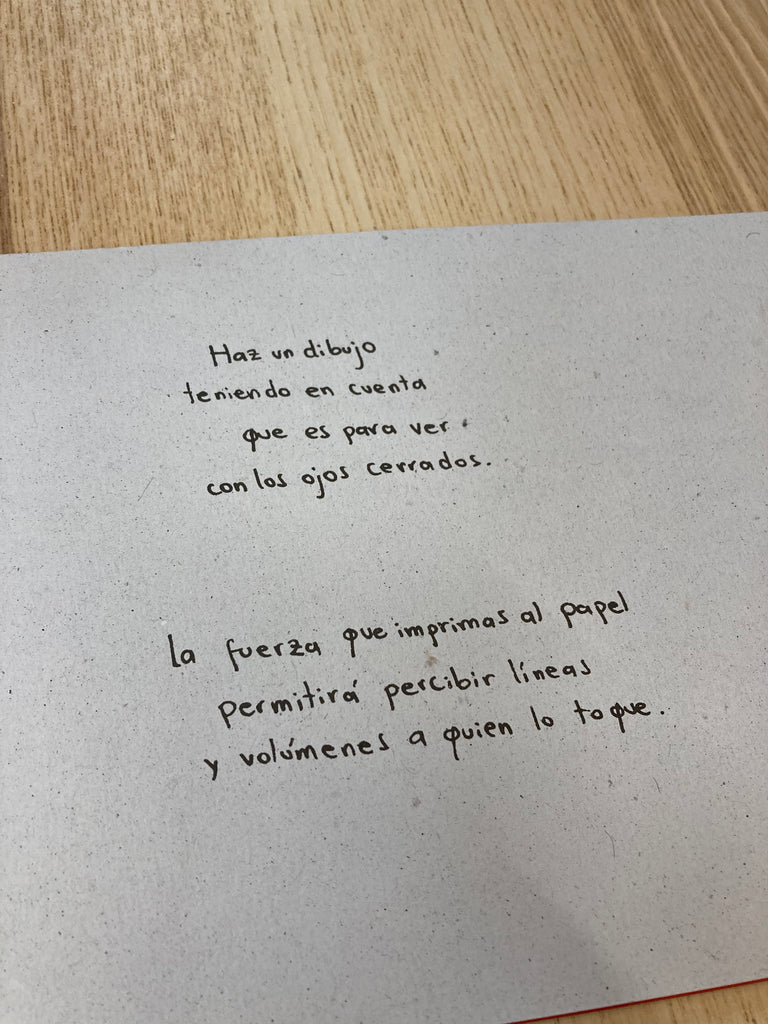 Haz un dibujo
teniendo en cuenta
que es para ver
con los ojos cerrados.
La fuerza que imprimas al papel
permitirá percibir líneas
y volúmenes a quien lo toque.